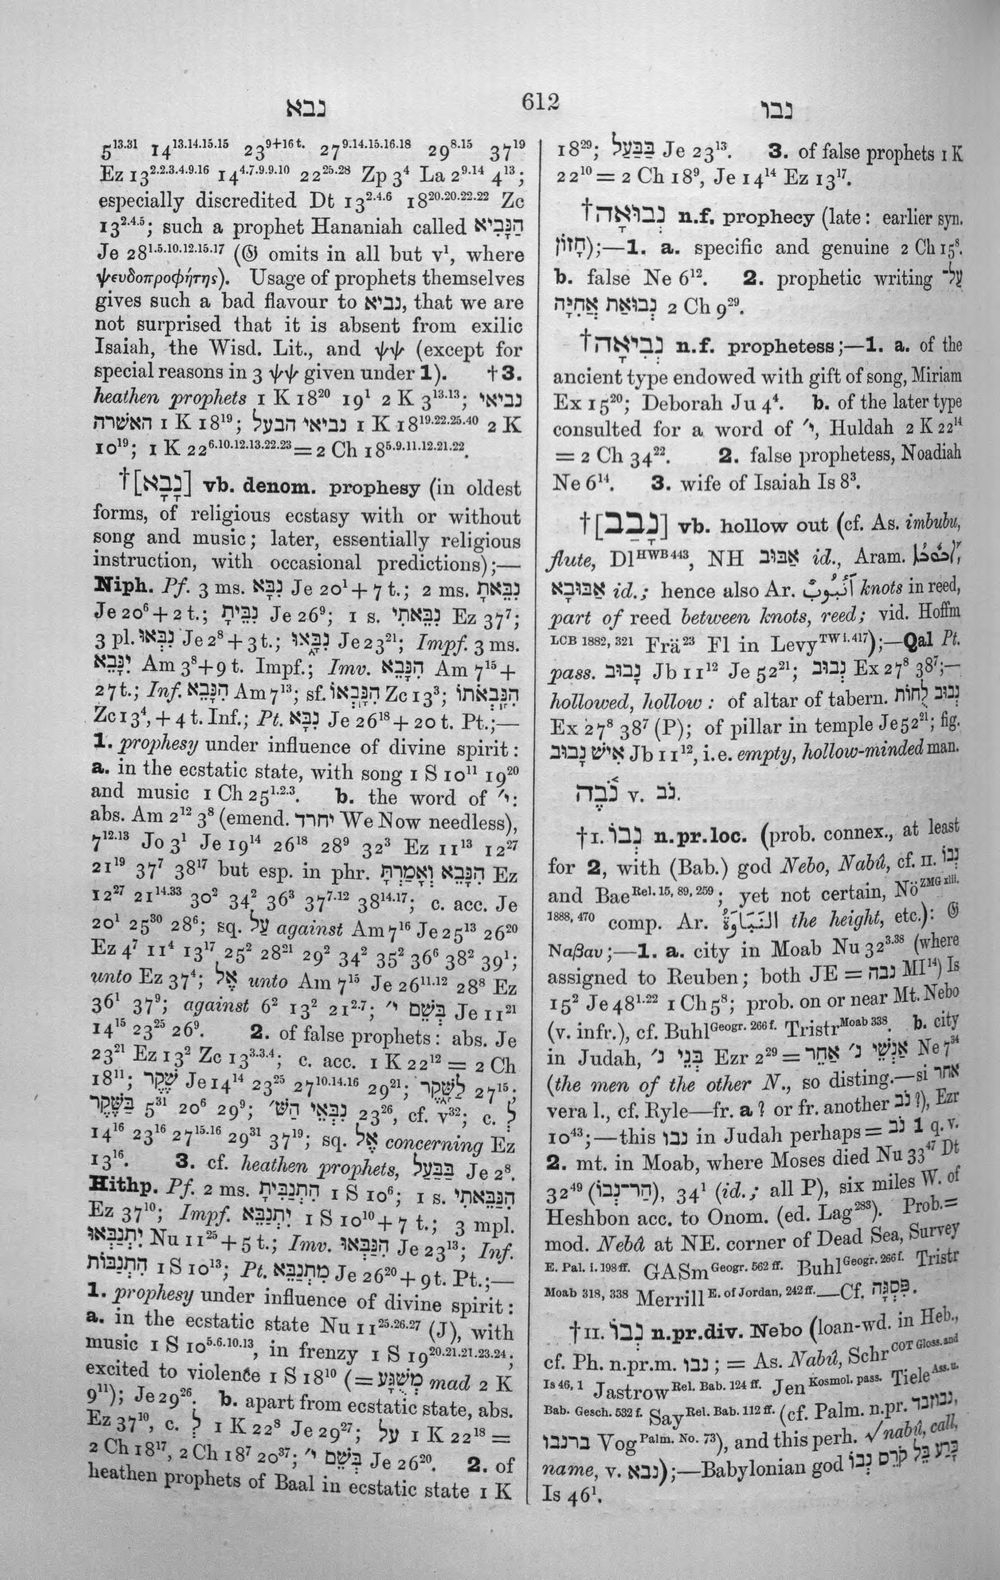 נבא
612
נבו
5¹³·³¹ 14¹³·¹⁴·¹⁵·¹⁵ 23⁹⁺¹⁶ᵗ· 27⁹·¹⁴·¹⁵·¹⁶·¹⁸ 29⁸·¹⁵ 37¹⁹
Ez 13²·²·³·⁴·⁹·¹⁶ 14⁴·⁷·⁹·⁹·¹⁰ 22²⁵·²⁸ Zp 3⁴ La 2⁹·¹⁴ 4¹³;
especially discredited Dt 13²·⁴·⁶ 18²⁰·²⁰·²²·²² Zc
13²·⁴·⁵; such a prophet Hananiah called הַנָּבִיא
Je 28¹·⁵·¹⁰·¹²·¹⁵·¹⁷ (𝔊 omits in all but v¹, where
ψευδοπροφήτης). Usage of prophets themselves
gives such a bad flavour to נביא, that we are
not surprised that it is absent from exilic
Isaiah, the Wisd. Lit., and ψψ (except for
special reasons in 3 ψψ given under 1). †3.
heathen prophets 1 K 18²⁰ 19¹ 2 K 3¹³·¹³; נביאי
האשרה 1 K 18¹⁹; נביאי הבעל 1 K 18¹⁹·²²·²⁵·⁴⁰ 2 K
10¹⁹; 1 K 22⁶·¹⁰·¹²·¹³·²²·²³ = 2 Ch 18⁵·⁹·¹¹·¹²·²¹·²².
†[נָבָא] vb. denom. prophesy (in oldest
forms, of religious ecstasy with or without
song and music; later, essentially religious
instruction, with occasional predictions);—
Niph. Pf. 3 ms. נִבָּא Je 20¹ + 7 t.; 2 ms. נִבֵּאתָ
Je 20⁶ + 2 t.; נִבֵּיתָ Je 26⁹; 1 s. נִבֵּאתִי Ez 37⁷;
3 pl. נִבְּאוּ Je 2⁸ + 3 t.; נִבָּאוּ Je 23²¹; Impf. 3 ms.
יִנָּבֵא Am 3⁸ + 9 t. Impf.; Imv. הִנָּבֵא Am 7¹⁵ +
27 t.; Inf. הִנָּבֵא Am 7¹³; sf. הִנָּבְאוֹ Zc 13³; הִנָּבְאֹתוֹ
Zc 13⁴, + 4 t. Inf.; Pt. נִבָּא Je 26¹⁸ + 20 t. Pt.;—
1. prophesy under influence of divine spirit:
a. in the ecstatic state, with song 1 S 10¹¹ 19²⁰
and music 1 Ch 25¹·²·³. b. the word of י׳:
abs. Am 2¹² 3⁸ (emend. יחרד We Now needless),
7¹²·¹³ Jo 3¹ Je 19¹⁴ 26¹⁸ 28⁹ 32³ Ez 11¹³ 12²⁷
21¹⁹ 37⁷ 38¹⁷ but esp. in phr. הִנָּבֵא וְאָמַרְתָּ Ez
12²⁷ 21¹⁴·³³ 30² 34² 36³ 37⁷·¹² 38¹⁴·¹⁷; c. acc. Je
20¹ 25³⁰ 28⁶; sq. עַל against Am 7¹⁶ Je 25¹³ 26²⁰
Ez 4⁷ 11⁴ 13¹⁷ 25² 28²¹ 29² 34² 35² 36⁶ 38² 39¹;
unto Ez 37⁴; אֶל unto Am 7¹⁵ Je 26¹¹·¹² 28⁸ Ez
36¹ 37⁹; against 6² 13² 21²·⁷; בְּשֵׁם י׳ Je 11²¹
14¹⁵ 23²⁵ 26⁹. 2. of false prophets: abs. Je
23²¹ Ez 13² Zc 13³·³·⁴; c. acc. 1 K 22¹² = 2 Ch
18¹¹; שֶׁקֶר Je 14¹⁴ 23²⁵ 27¹⁰·¹⁴·¹⁶ 29²¹; לַשֶּׁקֶר 27¹⁵;
בַּשֶּׁקֶר 5³¹ 20⁶ 29⁹; נִבְּאֵי הַשּׁ׳ 23²⁶, cf. v³²; c. לְ
14¹⁶ 23¹⁶ 27¹⁵·¹⁶ 29³¹ 37¹⁹; sq. אֶל concerning Ez
13¹⁶. 3. cf. heathen prophets, בַּבַּעַל Je 2⁸.
Hithp. Pf. 2 ms. הִתְנַבִּיתָ 1 S 10⁶; 1 s. הִנַּבֵּאתִי
Ez 37¹⁰; Impf. יִתְנַבֵּא 1 S 10¹⁰ + 7 t.; 3 mpl.
יִתְנַבְּאוּ Nu 11²⁵ + 5 t.; Imv. הִנַּבְּאוּ Je 23¹³; Inf.
הִתְנַבּוֹת 1 S 10¹³; Pt. מִתְנַבֵּא Je 26²⁰ + 9 t. Pt.;—
1. prophesy under influence of divine spirit:
a. in the ecstatic state Nu 11²⁵·²⁶·²⁷ (J), with
music 1 S 10⁵·⁶·¹⁰·¹³, in frenzy 1 S 19²⁰·²¹·²¹·²³·²⁴;
excited to violence 1 S 18¹⁰ (= מְשֻׁגָּע mad 2 K
9¹¹); Je 29²⁶. b. apart from ecstatic state, abs.
Ez 37¹⁰, c. לְ 1 K 22⁸ Je 29²⁷; עַל 1 K 22¹⁸ =
2 Ch 18¹⁷, 2 Ch 18⁷ 20³⁷; בְּשֵׁם י׳ Je 26²⁰. 2. of
heathen prophets of Baal in ecstatic state 1 K
18²⁹; בַּבַּעַל Je 23¹³. 3. of false prophets 1 K
22¹⁰ = 2 Ch 18⁹, Je 14¹⁴ Ez 13¹⁷.
†נְבוּאָה n.f. prophecy (late: earlier syn.
חָזוֹן);—1. a. specific and genuine 2 Ch 15⁸.
b. false Ne 6¹². 2. prophetic writing עַל־
נְבוּאַת אֲחִיָּה 2 Ch 9²⁹.
†נְבִיאָה n.f. prophetess;—1. a. of the
ancient type endowed with gift of song, Miriam
Ex 15²⁰; Deborah Ju 4⁴. b. of the later type
consulted for a word of י׳, Huldah 2 K 22¹⁴
= 2 Ch 34²². 2. false prophetess, Noadiah
Ne 6¹⁴. 3. wife of Isaiah Is 8³.
†[נָבַב] vb. hollow out (cf. As. imbubu,
flute, Dl ᴴᵂᴮ ⁴⁴³, NH אַבּוּב id., Aram.
אַבּוּבָא id.; hence also Ar. أُنْبُوبٌ knots in reed,
part of reed between knots, reed; vid. Hoffm
LCB 1882, 321 Frä²³ Fl in Levy TW i. 417);—Qal Pt.
pass. נָבוּב Jb 11¹² Je 52²¹; נְבוּב Ex 27⁸ 38⁷;—
hollowed, hollow: of altar of tabern. נְבוּב לֻחֹת
Ex 27⁸ 38⁷ (P); of pillar in temple Je 52²¹; fig.
אִישׁ נָבוּב Jb 11¹², i.e. empty, hollow-minded man.
נֹבֶה v. נֹב.
†I. נְבוֹ n.pr.loc. (prob. connex., at least
for 2, with (Bab.) god Nebo, Nabû, cf. II. נְבוֹ
and Bae Rel. 15, 89, 259; yet not certain, Nö ZMG xlii.
1888, 470 comp. Ar. النَّبَاوَةُ the height, etc.): 𝔊
Ναβαυ;—1. a. city in Moab Nu 32³·³⁸ (where
assigned to Reuben; both JE = נבה MI¹⁴) Is
15² Je 48¹·²² 1 Ch 5⁸; prob. on or near Mt. Nebo
(v. infr.), cf. Buhl Geogr. 266 f. Tristr Moab 338. b. city
in Judah, בְּנֵי נ׳ Ezr 2²⁹ = אַנְשֵׁי נ׳ אַחֵר Ne 7³⁴
(the men of the other N., so disting.—si אחר
vera l., cf. Ryle—fr. a? or fr. another נֹב?), Ezr
10⁴³;—this נבו in Judah perhaps = נֹב 1 q.v.
2. mt. in Moab, where Moses died Nu 33⁴⁷ Dt
32⁴⁹ (הַר־נְבוֹ), 34¹ (id.; all P), six miles W. of
Heshbon acc. to Onom. (ed. Lag²⁸³). Prob. =
mod. Nebâ at NE. corner of Dead Sea, Survey
E. Pal. i. 198 ff. GASm Geogr. 562 ff. Buhl Geogr. 266 f. Tristr
Moab 318, 338 Merrill E. of Jordan, 242 ff.—Cf. פִּסְגָּה.
†II. נְבוֹ n.pr.div. Nebo (loan-wd. in Heb.,
cf. Ph. n.pr.m. נבו; = As. Nabû, Schr COT Gloss. and
Is 46, 1 Jastrow Rel. Bab. 124 ff. Jen Kosmol. pass. Tiele Ass. u.
Bab. Gesch. 532 f. Say Rel. Bab. 112 ff. (cf. Palm. n.pr. נבוזבד,
ברנבו Vog Palm. No. 73), and this perh. √nabû, call,
name, v. נבא);—Babylonian god כָּרַע בֵּל קֹרֵס נְבוֹ
Is 46¹.